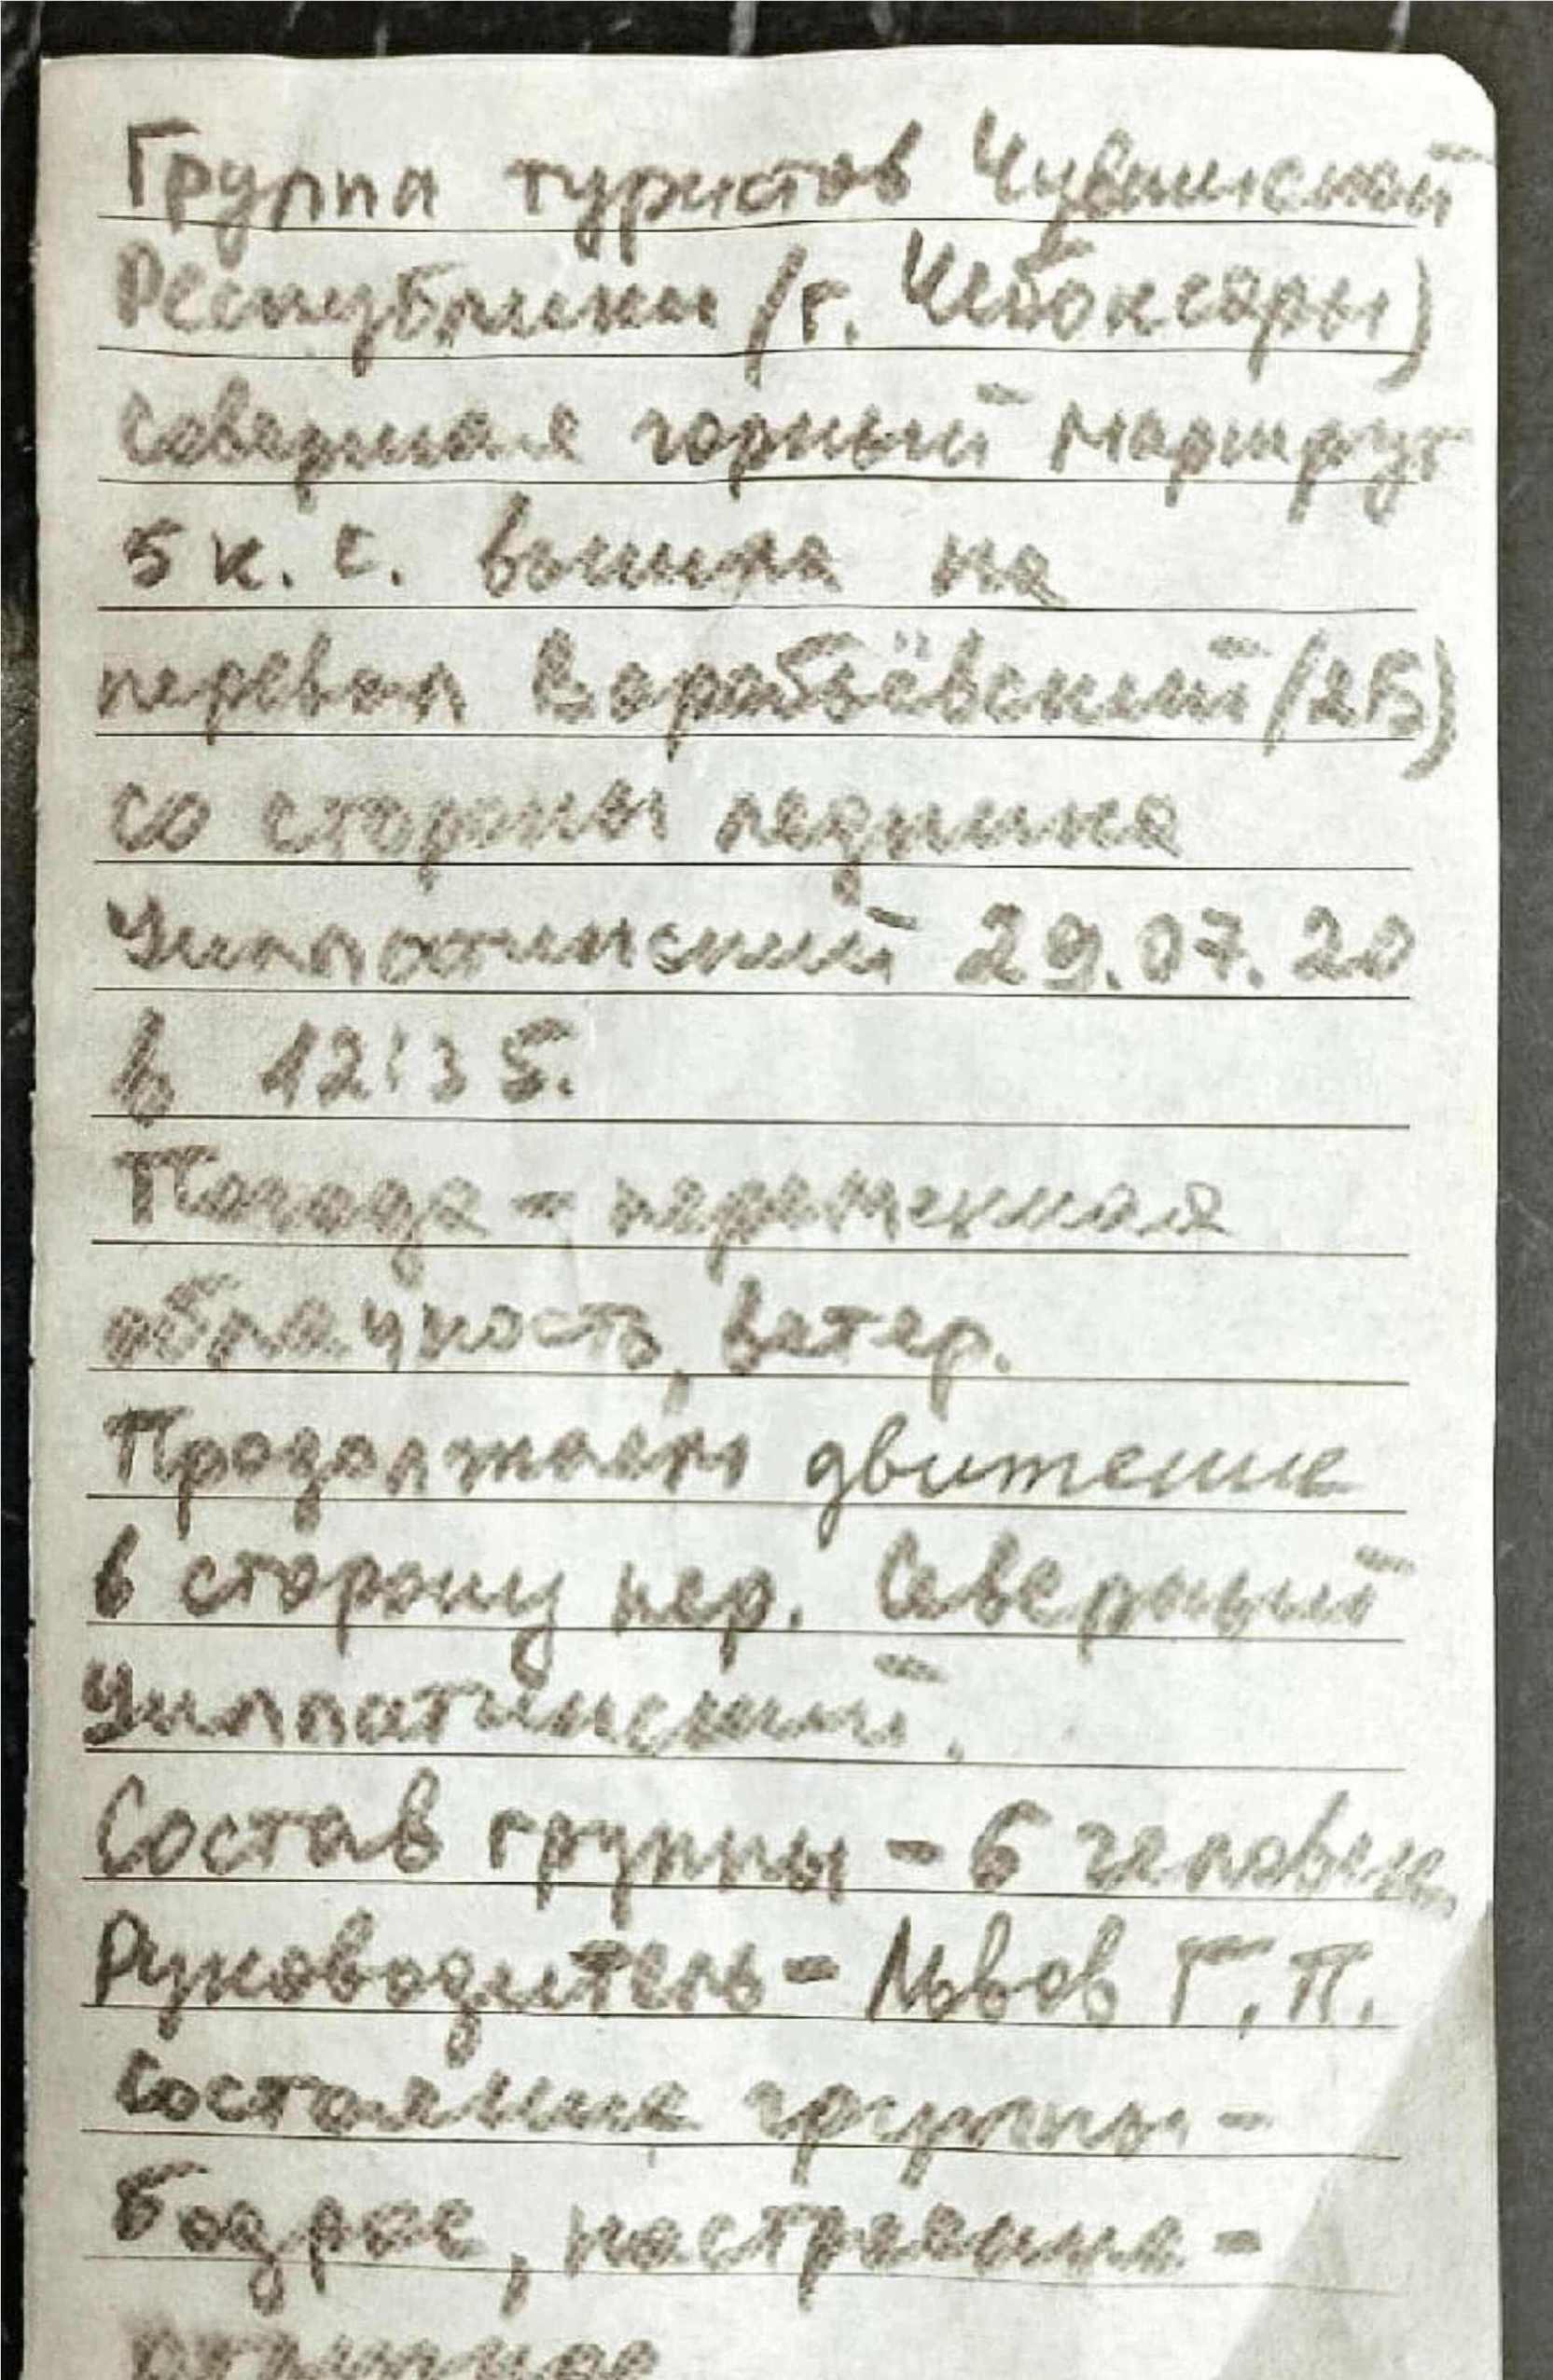 Группа туристов Чувашской
Республики (г. Чебоксары)
совершая горный маршрут
5 к. с. вышла на
перевал Воробьёвский (2Б)
со стороны ледника
Уилпатинский 29.07.20
в 12:35.
Погода - переменная
облачность, ветер.
Продолжаем движение
в сторону пер. Северный
Уилпатинский.
Состав группы - 6 человек
Руководитель - Львов Г. П.
Состояние группы -
бодрое, настроение -
отличное